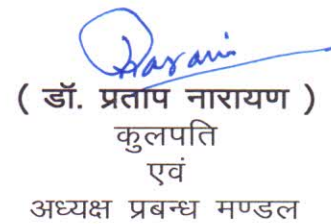 ( डॉ. प्रताप नारायण )
कुलपति
एवं
अध्यक्ष प्रबन्ध मण्डल